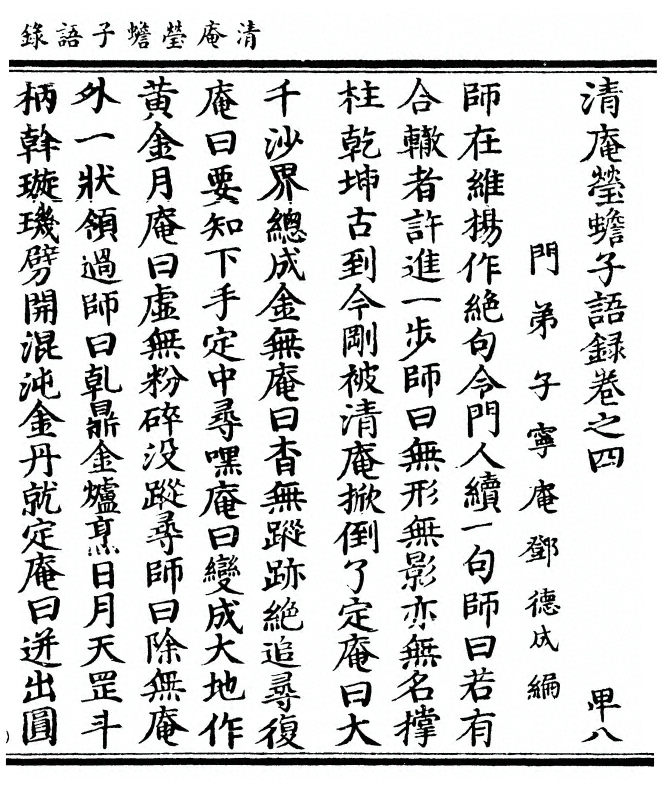 清庵瑩蟾子語錄
清庵瑩蟾子語錄卷之四 甲八
門弟子寧庵鄧德成編
師在維揚作絕句令門人續一句師曰若有
合轍者許進一步師曰無形無影亦無名撑
柱乾坤古到今剛被清庵掀倒了定庵曰大
千沙界總成金無庵曰杳無蹤跡絕追尋復
庵曰要知下手定中尋嘿庵曰變成大地作
黃金月庵曰虛無粉碎没蹤尋師曰除無庵
外一狀領過師曰乹鼎金爐烹日月天罡斗
柄斡璇璣劈開混沌金丹就定庵曰迸出圓